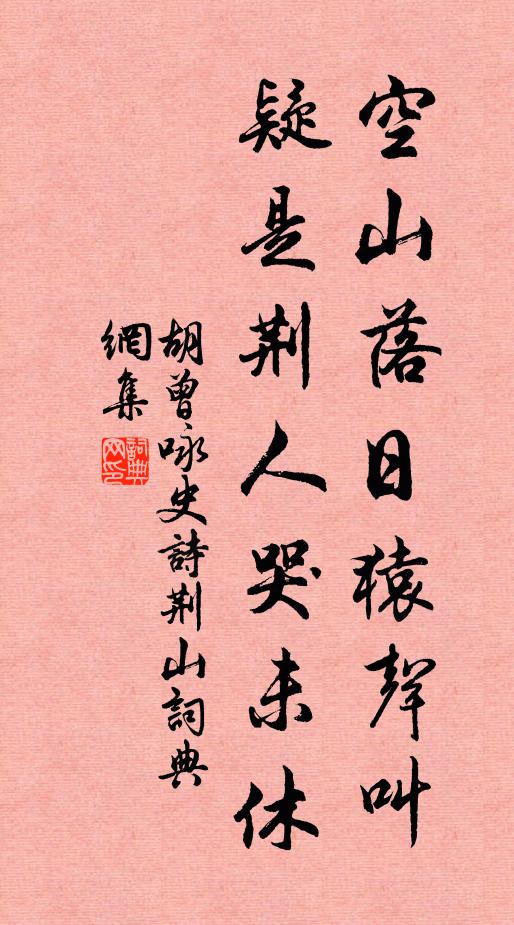 空山落日猿聲叫
疑是荆人哭未休
胡曾咏史詩荆山詞典
網集
詞典
网印